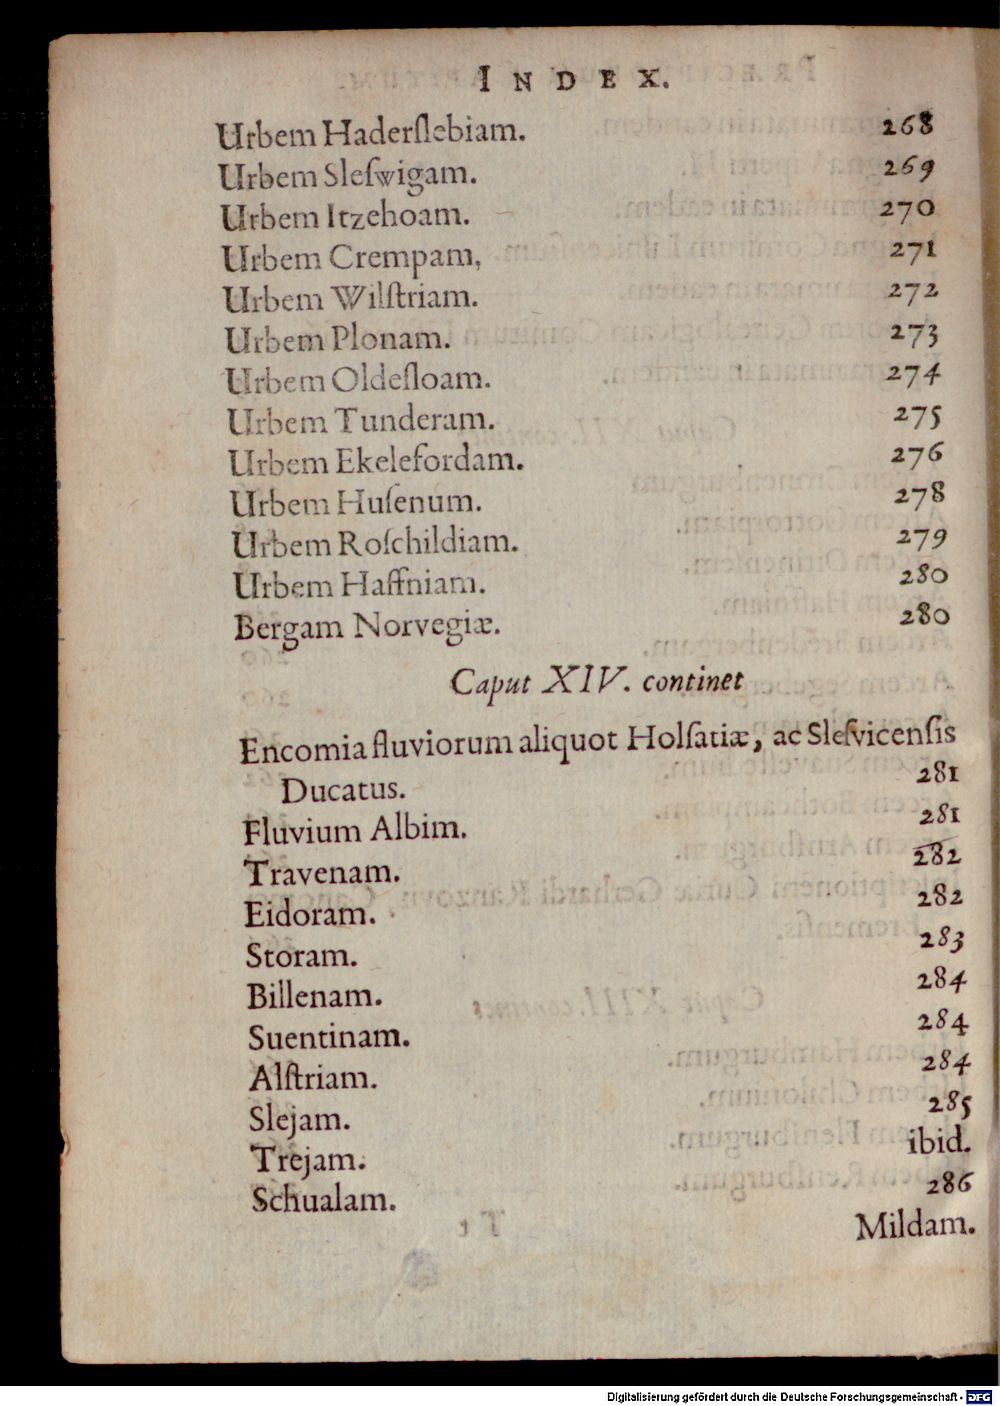 INDEX.
Urbem Haderſlebiam. 268
Urbem Sleſwigam. 269
Urbem Itzehoam. 270
Urbem Crempam, 271
Urbem Wilſtriam. 272
Urbem Plonam. 273
Urbem Oldeſloam. 274
Urbem Tunderam. 275
Urbem Ekelefordam. 276
Urbem Huſenum. 278
Urbem Roſchildiam. 279
Urbem Haffniam. 280
Bergam Norvegiæ. 280
Caput XIV. continet
Encomia fluviorum aliquot Holſatiæ, ac Sleſvicenſis
Ducatus. 281
Fluvium Albim. 281
Travenam. 282
Eidoram. 282
Storam. 283
Billenam. 284
Suentinam. 284
Alſtriam. 284
Slejam. 285
Trejam. ibid.
Schualam. 286
Mildam.
Digitalisierung gefördert durch die Deutsche Forschungsgemeinschaft - DFG